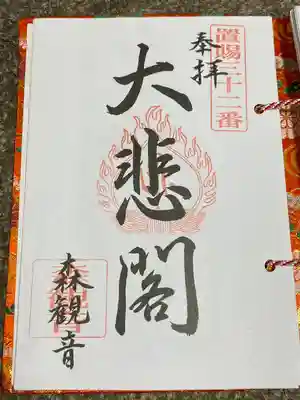 奉拝
置賜三十二番
大悲閣
森観音